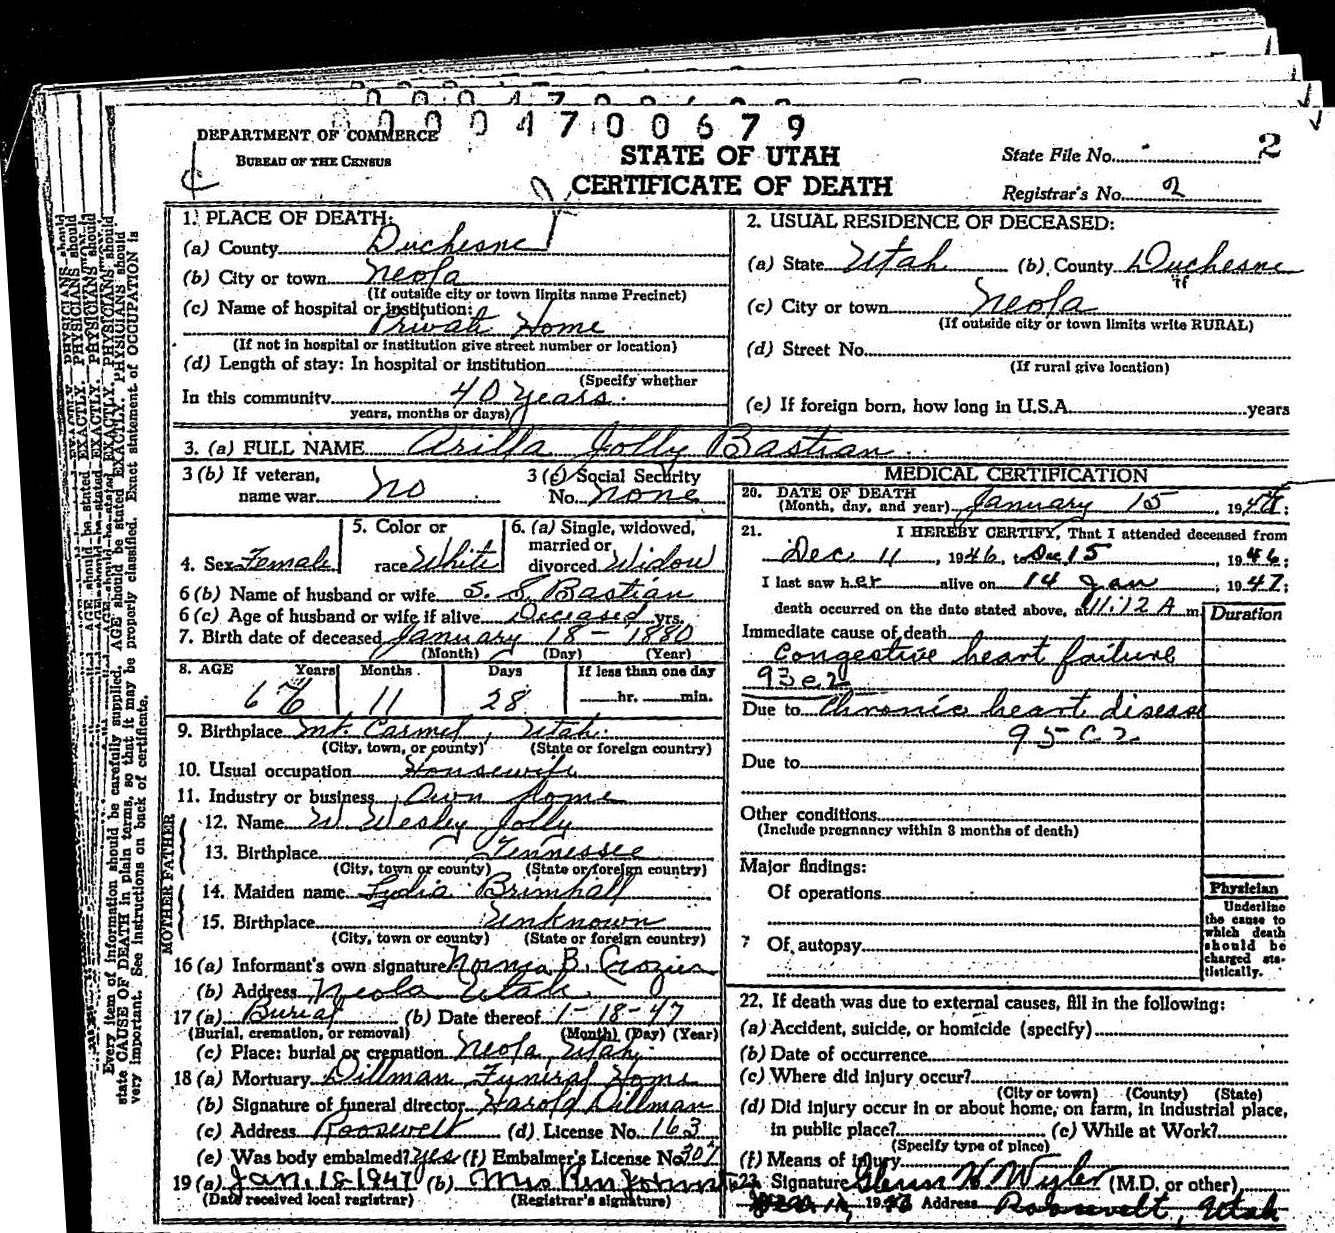 0004700679
DEPARTMENT OF COMMERCE
BUREAU OF THE CENSUS
STATE OF UTAH
CERTIFICATE OF DEATH
State File No. 2
Registrar's No. 2
1. PLACE OF DEATH:
(a) County Duchesne
(b) City or town Neola
(If outside city or town limits name Precinct)
(c) Name of hospital or institution:
Private Home
(If not in hospital or institution give street number or location)
(d) Length of stay: In hospital or institution
(Specify whether
In this community 40 years
years, months or days)
2. USUAL RESIDENCE OF DECEASED:
(a) State Utah (b) County Duchesne
(c) City or town Neola
(If outside city or town limits write RURAL)
(d) Street No.
(If rural give location)
(e) If foreign born, how long in U.S.A. years
3. (a) FULL NAME Arilla Jolly Bastian
3 (b) If veteran, name war No
3 (c) Social Security No. none
4. Sex Female
5. Color or race White
6. (a) Single, widowed, married or divorced Widow
6 (b) Name of husband or wife S. S. Bastian
6 (c) Age of husband or wife if alive Deceased yrs.
7. Birth date of deceased January 18 - 1880
(Month) (Day) (Year)
8. AGE Years Months Days If less than one day
66 11 28 hr. min.
9. Birthplace Mt. Carmel, Utah
(City, town, or county) (State or foreign country)
10. Usual occupation Housewife
11. Industry or business Own Home
FATHER
12. Name W Wesley Jolly
13. Birthplace Tennessee
(City, town or county) (State or foreign country)
MOTHER
14. Maiden name Lydia Brimhall
15. Birthplace Unknown
(City, town or county) (State or foreign country)
16 (a) Informant's own signature Norma B. Crozier
(b) Address Neola Utah
17 (a) Burial (b) Date thereof 1-18-47
(Burial, cremation, or removal) (Month) (Day) (Year)
(c) Place: burial or cremation Neola, Utah
18 (a) Mortuary Dillman Funeral Home
(b) Signature of funeral director Harold Dillman
(c) Address Roosevelt (d) License No. 163
(e) Was body embalmed? yes (f) Embalmer's License No. 307
19 (a) Jan. 18 1947 (b) Mrs Ren Johnston
(Date received local registrar) (Registrar's signature)
MEDICAL CERTIFICATION
20. DATE OF DEATH
(Month, day, and year) January 15, 1947;
21. I HEREBY CERTIFY, That I attended deceased from
Dec 11, 1946, to Dec 15, 1946;
I last saw her alive on 14 Jan, 1947;
death occurred on the date stated above, at 11:12 A m
Duration
Immediate cause of death
Congestive heart failure
93e2
Due to Chronic heart disease
95c2
Due to
Other conditions
(Include pregnancy within 3 months of death)
Major findings:
Of operations
Of autopsy
Physician
Underline
the cause to
which death
should be
charged sta-
tistically.
22. If death was due to external causes, fill in the following:
(a) Accident, suicide, or homicide (specify)
(b) Date of occurrence
(c) Where did injury occur?
(City or town) (County) (State)
(d) Did injury occur in or about home, on farm, in industrial place,
in public place? (e) While at Work?
(Specify type of place)
(f) Means of injury
23. Signature Glenn H Wyler (M.D. or other)
19 Address Roosevelt, Utah
Every item of information should be carefully supplied. AGE should be stated EXACTLY. PHYSICIANS should
state CAUSE OF DEATH in plain terms, so that it may be properly classified. Exact statement of OCCUPATION is
very important. See instructions on back of certificate.